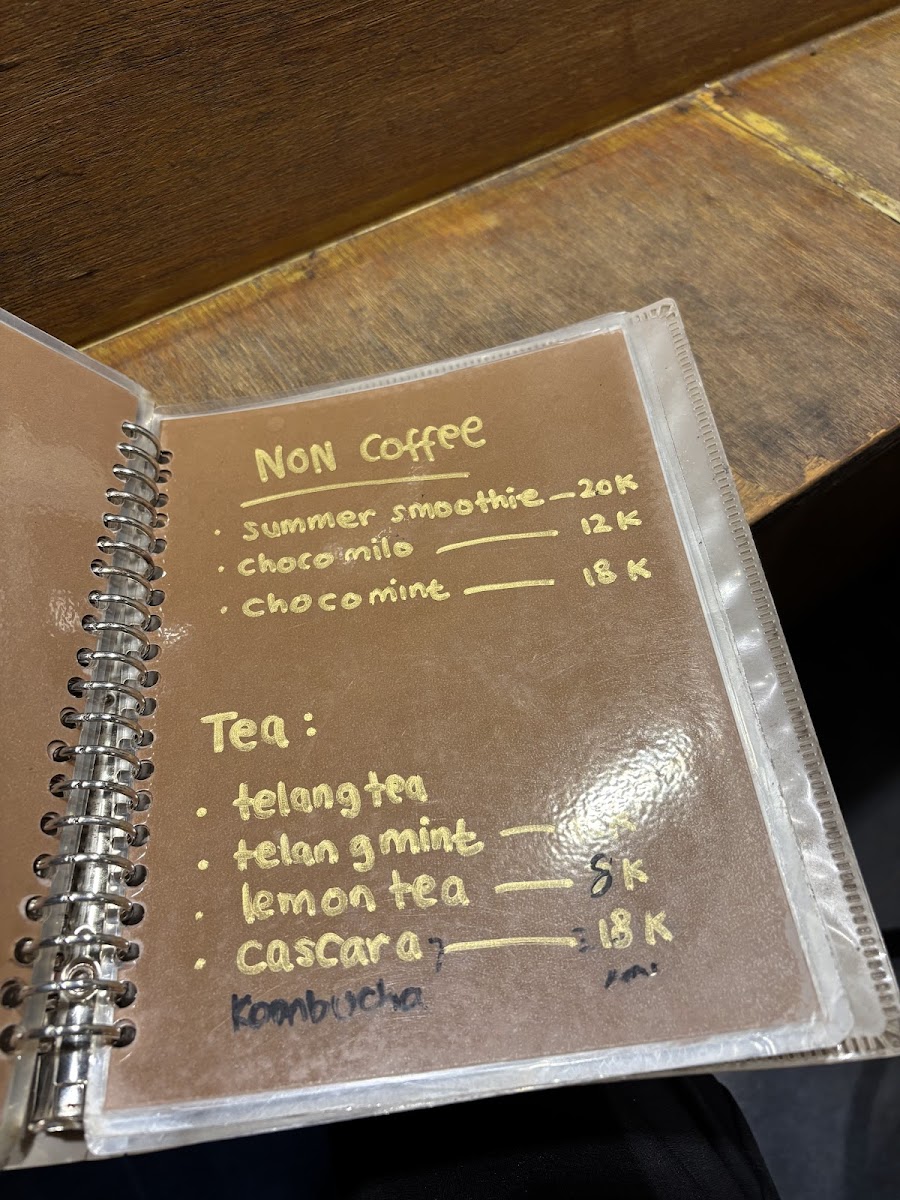 NON Coffee
• summer smoothie — 20K
• choco milo — 12K
• chocomint — 18K
Tea :
• telang tea
• telang mint — K
• lemon tea — 8K
• cascara — 18K
Koonbucha